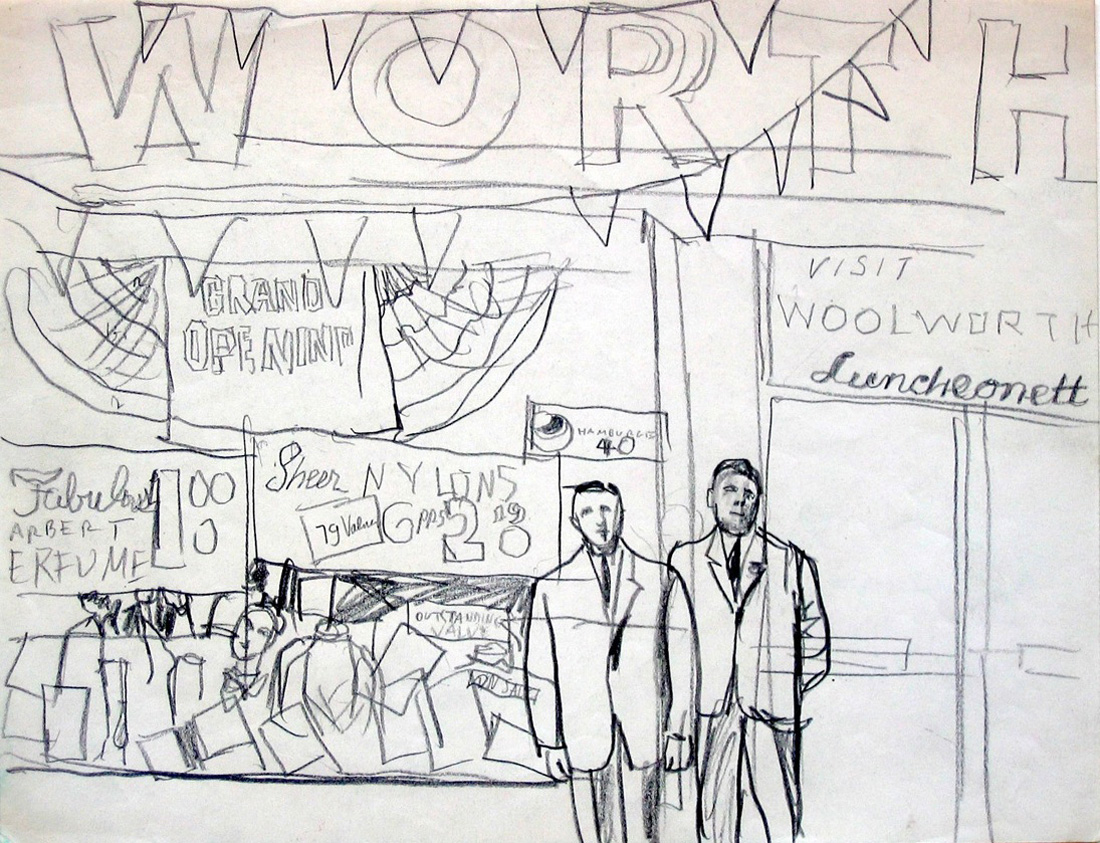 WORTH
GRAND
OPENING
VISIT
WOOLWORTH
Luncheonett
HAMBURGER
40
Fabulous 100
ARBERT
ERFUME
Sheer NYLONS
79 Value
2
OUTSTANDING
VALUE